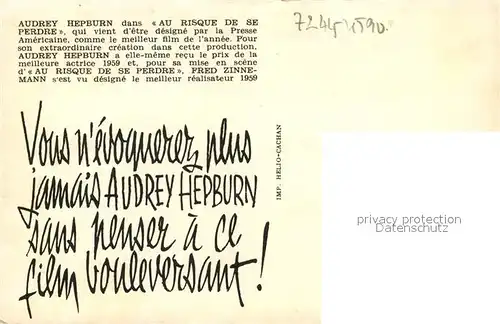 AUDREY HEPBURN dans « AU RISQUE DE SE
PERDRE », qui vient d'être désigné par la Presse
Américaine, comme le meilleur film de l'année. Pour
son extraordinaire création dans cette production,
AUDREY HEPBURN a elle-même reçu le prix de la
meilleure actrice 1959 et, pour sa mise en scène
d'« AU RISQUE DE SE PERDRE », FRED ZINNE-
MANN s'est vu désigné le meilleur réalisateur 1959
Vous n'évoquerez plus
jamais AUDREY HEPBURN
sans penser à ce
film bouleversant !
IMP. HELIO-CACHAN
privacy protection
Datenschutz